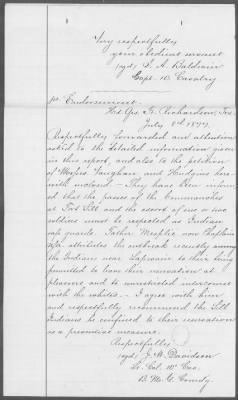 Very respectfully
your obedient servant
(sgd) T. A. Baldwin
Capt. 10. Cavalry
1st Endorsement.
Hd. Qrs. Ft. Richardson, Tex.
July 8th 1877.
Respectfully forwarded and attention
asked to the detailed information given
in this report, and also to the petition
of Messrs Vaughan and Hudgins here-
with inclosed — They have been inform-
ed that the passes of the Commandes
at Fort Sill and the escort of one or two
soldiers must be respected as Indian
safe guards. Father
attributes the outbreak recently among
the Indians near to their being
permitted to leave their reservation at
pleasure and to unrestricted intercourse
with the whites. — I agree with him
and respectfully recommend the Sill
Indians be confined to their reservation
as a preventive measure.
Respectfully
(sgd) J. W. Davidson
Lt. Col. 10" Cav.
B. M. G. Comdg.